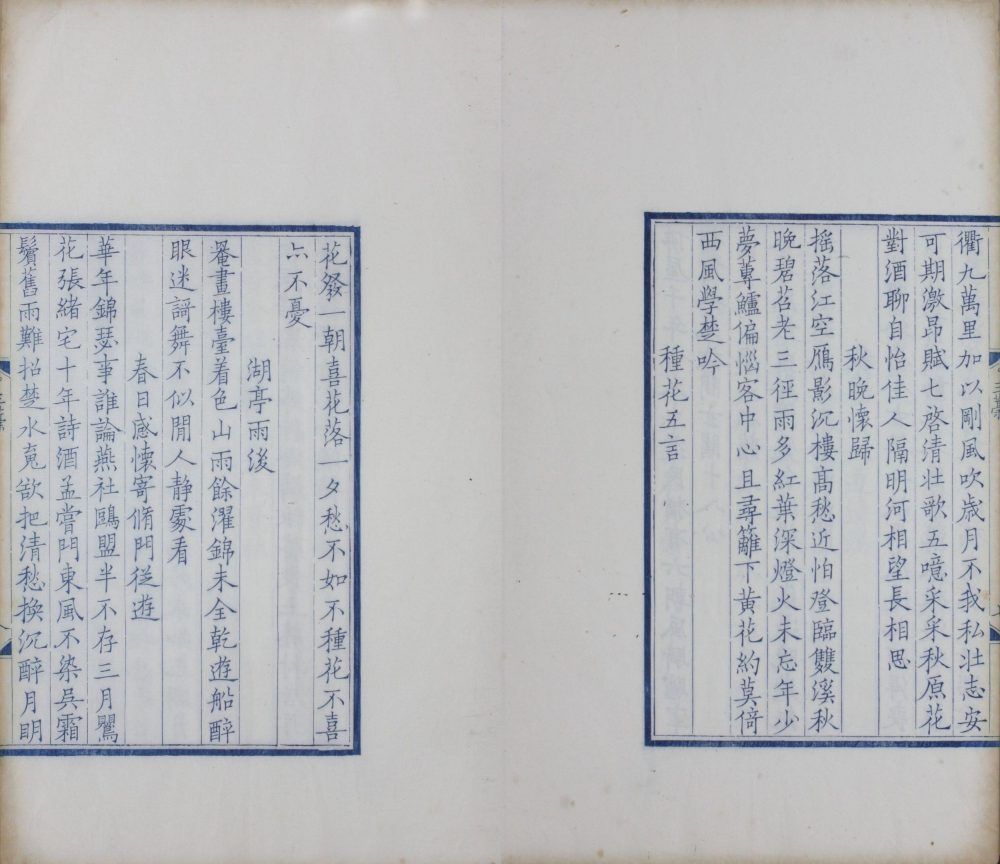 衢九萬里加以剛風吹歲月不我私壯志安
可期激昂賦七啓清壯歌五噫采采秋原花
對酒聊自怡佳人隔明河相望長相思
秋晚懷歸
摇落江空鴈影沉樓髙愁近怕登臨雙溪秋
晚碧苕老三徑雨多紅葉深燈火未忘年少
夢蓴鱸偏惱客中心且尋籬下黄花約莫倚
西風學楚吟
種花五言
花發一朝喜花落一夕愁不如不種花不喜
亦不憂
湖亭雨後
罨畫樓臺着色山雨餘濯錦未全乾遊船醉
眼迷謌舞不似閒人静處看
春日感懷寄脩門從遊
華年錦瑟事誰論燕社鷗盟半不存三月鶯
花張緒宅十年詩酒孟嘗門東風不染吳霜
鬢舊雨難招楚水䰟欲把清愁换沉醉月明